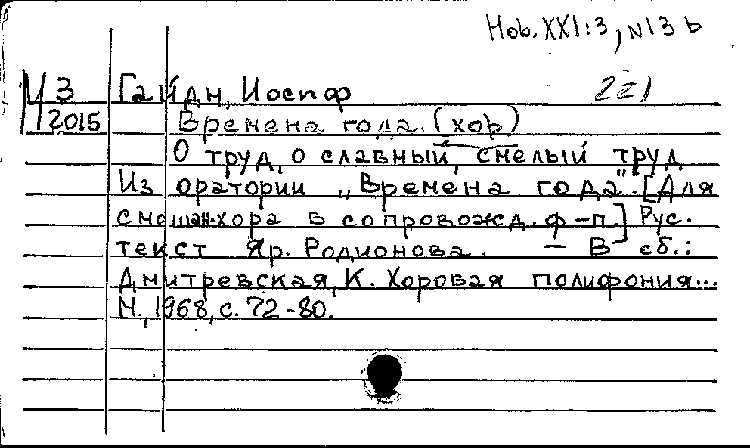 Hob. XXI:3, N13 b
М 3 Гайдн, Иосиф 221
2015 Времена года. (хор)
О труд, о славный, смелый труд
Из оратории „Времена года". [Для
смешан. хора в сопровожд. ф-п.] Рус.
текст Яр. Родионова. — В сб.:
Дмитревская, К. Хоровая полифония...
М., 1968, с. 72-80.